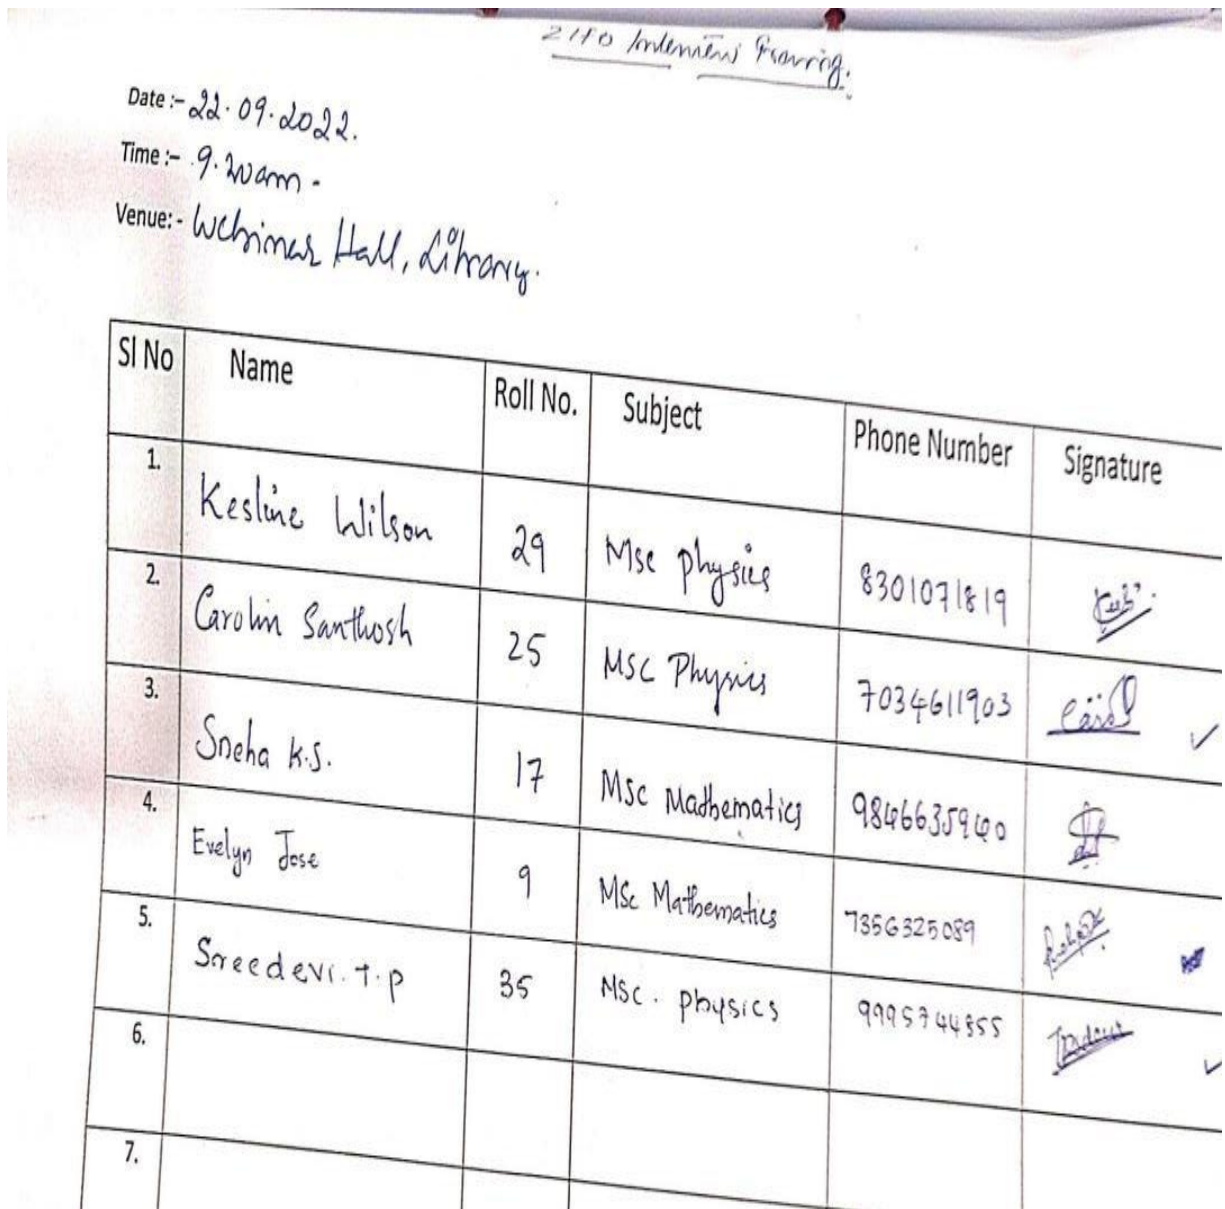 Interview
Date :- 22.09.2022.
Time :- 9.20am.
Venue:- Webinar Hall, Library.
Sl No Name Roll No. Subject Phone Number Signature
1. Kesline Wilson 29 Msc physics 8301071819
2. Carolin Santhosh 25 MSC Physics 7034611903
3. Sneha K.S. 17 MSc Mathematics 9846635940
4. Evelyn Jose 9 MSc Mathematics 7356325089
5. Sreedevi.T.P 35 MSC. physics 9995744355
6.
7.